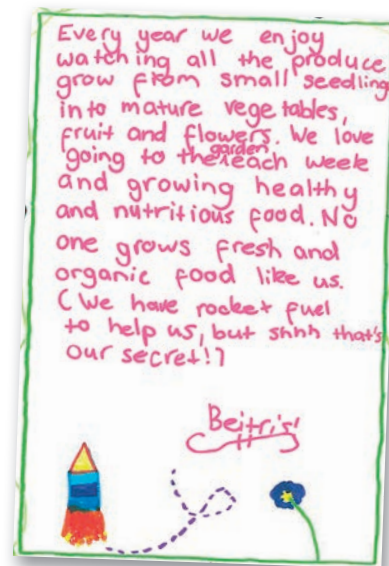 Every year we enjoy
watching all the produce
grow from small seedling
into mature vegetables,
fruit and flowers. We love
going to the garden each week
and growing healthy
and nutritious food. No
one grows fresh and
organic food like us.
(We have rocket fuel
to help us, but shhh that's
our secret!)
Beitris!